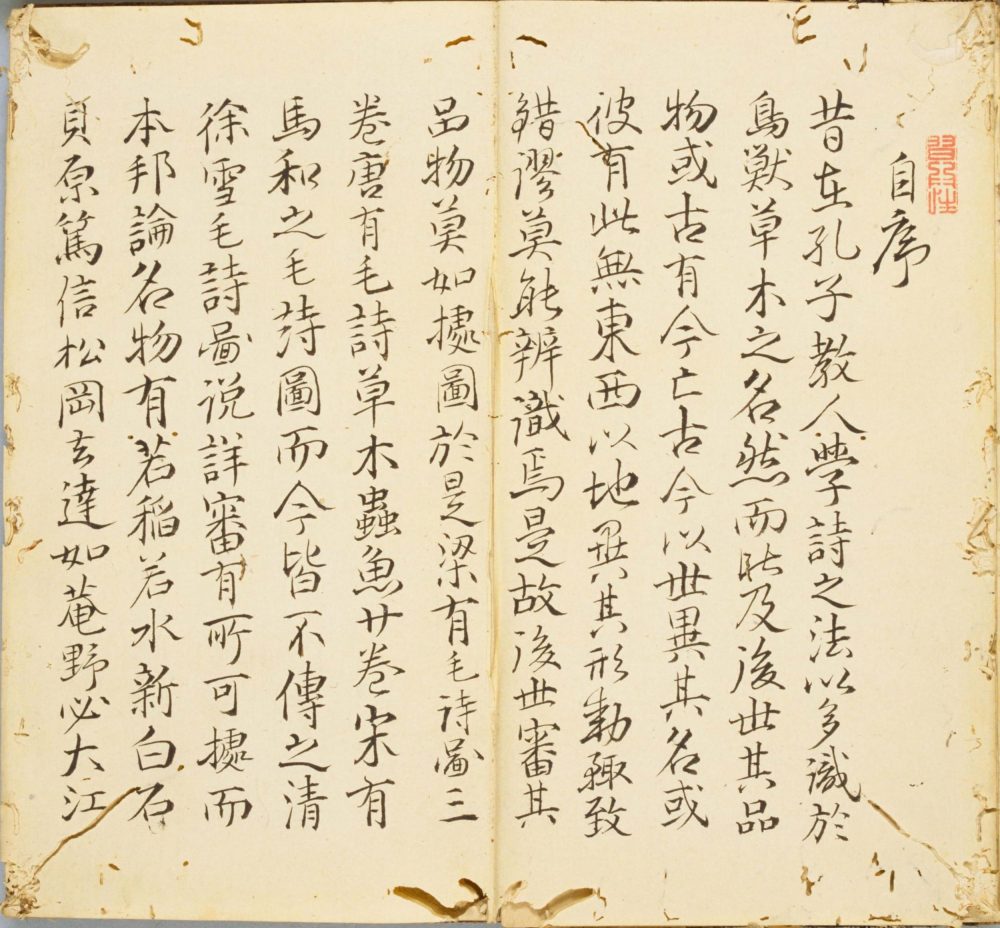 自序
昔在孔子教人學詩之法以多識於
鳥獸草木之名然而眦及後世其品
物或古有今亡古今以世異其名或
彼有此無東西以地異其形勢趣致
錯謬莫能辨識焉是故後世審其
品物莫如據圖於是梁有毛诗啚三
卷唐有毛詩草木蟲魚廿卷宋有
馬和之毛詩圖而今皆不傳之清
徐雪毛詩啚说詳審有所可據而
本邦論名物有若稲若水新白石
貝原篤信松岡玄達如菴野必大江